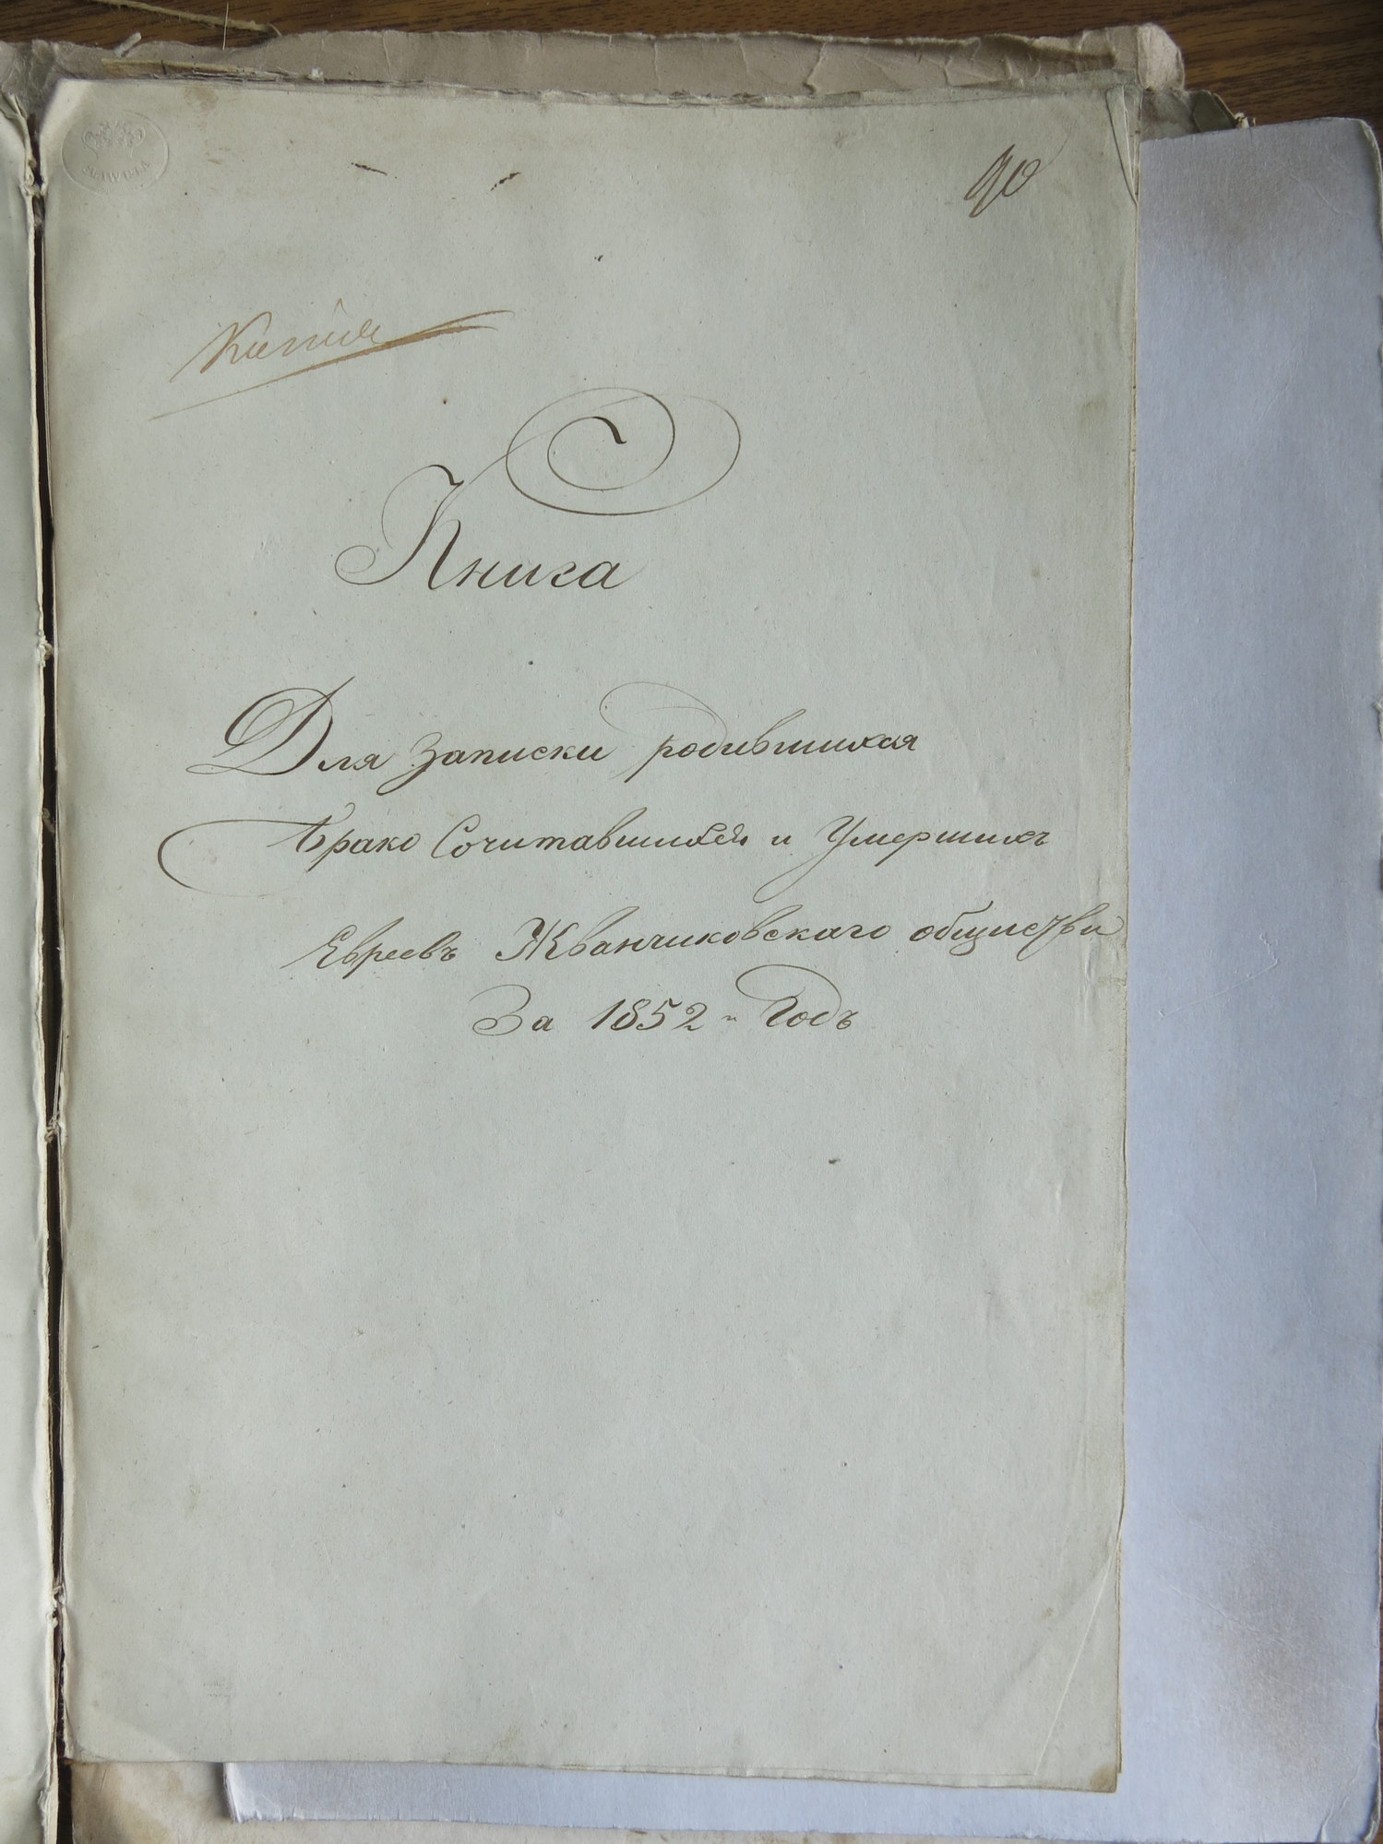 90
Копія
Книга
Для записки родившихся
брако Сочитавшихся и Умершихъ
Евреевъ Жванчиковскаго общиства
За 1852 й Годъ